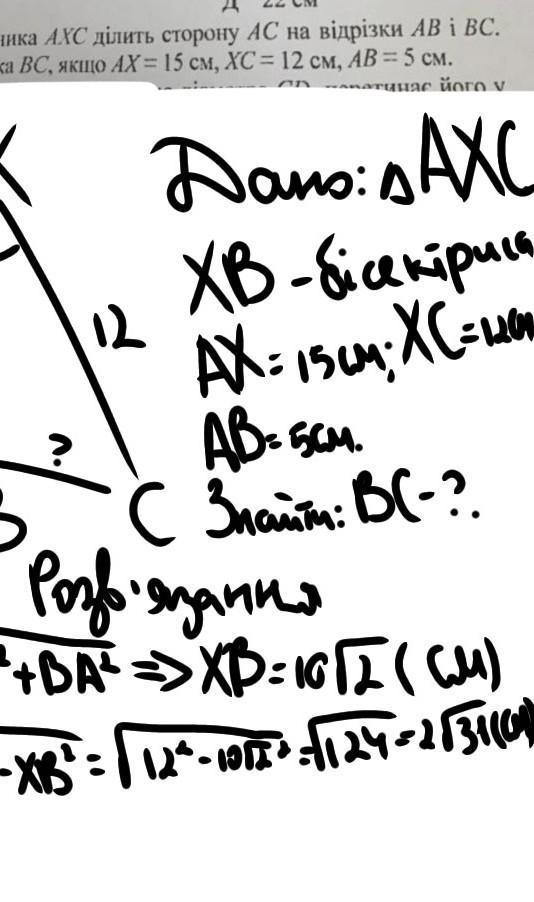 Д 22 см
ника AXC ділить сторону AC на відрізки AB і BC.
ка BC, якщо AX = 15 см, XC = 12 см, AB = 5 см.
CD, перетинає його у
X
Дано: △AXC
XB - бісектриса
12
AX = 15 см; XC = 12 см
AB = 5 см.
?
C
Знайти: BC - ?.
Розв'язання
² + BA² => XB = 10√2 (см)
- XB² = √12² - 10√2² = √124 = 2√31 (см)